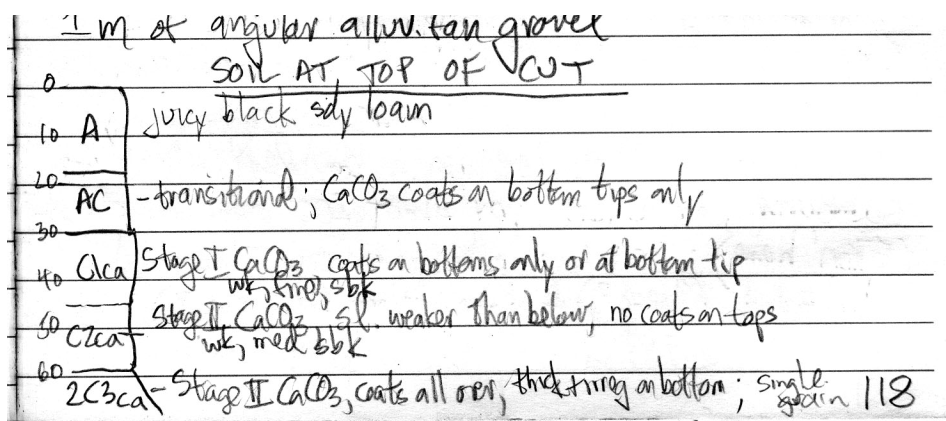 1 m of angular alluv. fan gravel
SOIL AT TOP OF CUT
0
10 A juicy black sdy loam
20
AC - transitional; CaCO3 coats on bottom tips only
30
40 C1ca Stage I CaCO3, coats on bottoms only or at bottom tip
wk, fine, sbk
50 C2ca Stage II CaCO3, sl. weaker than below, no coats on tops
wk, med sbk
60
2C3ca - Stage II CaCO3, coats all over, thick + irreg on bottom; single grain 118